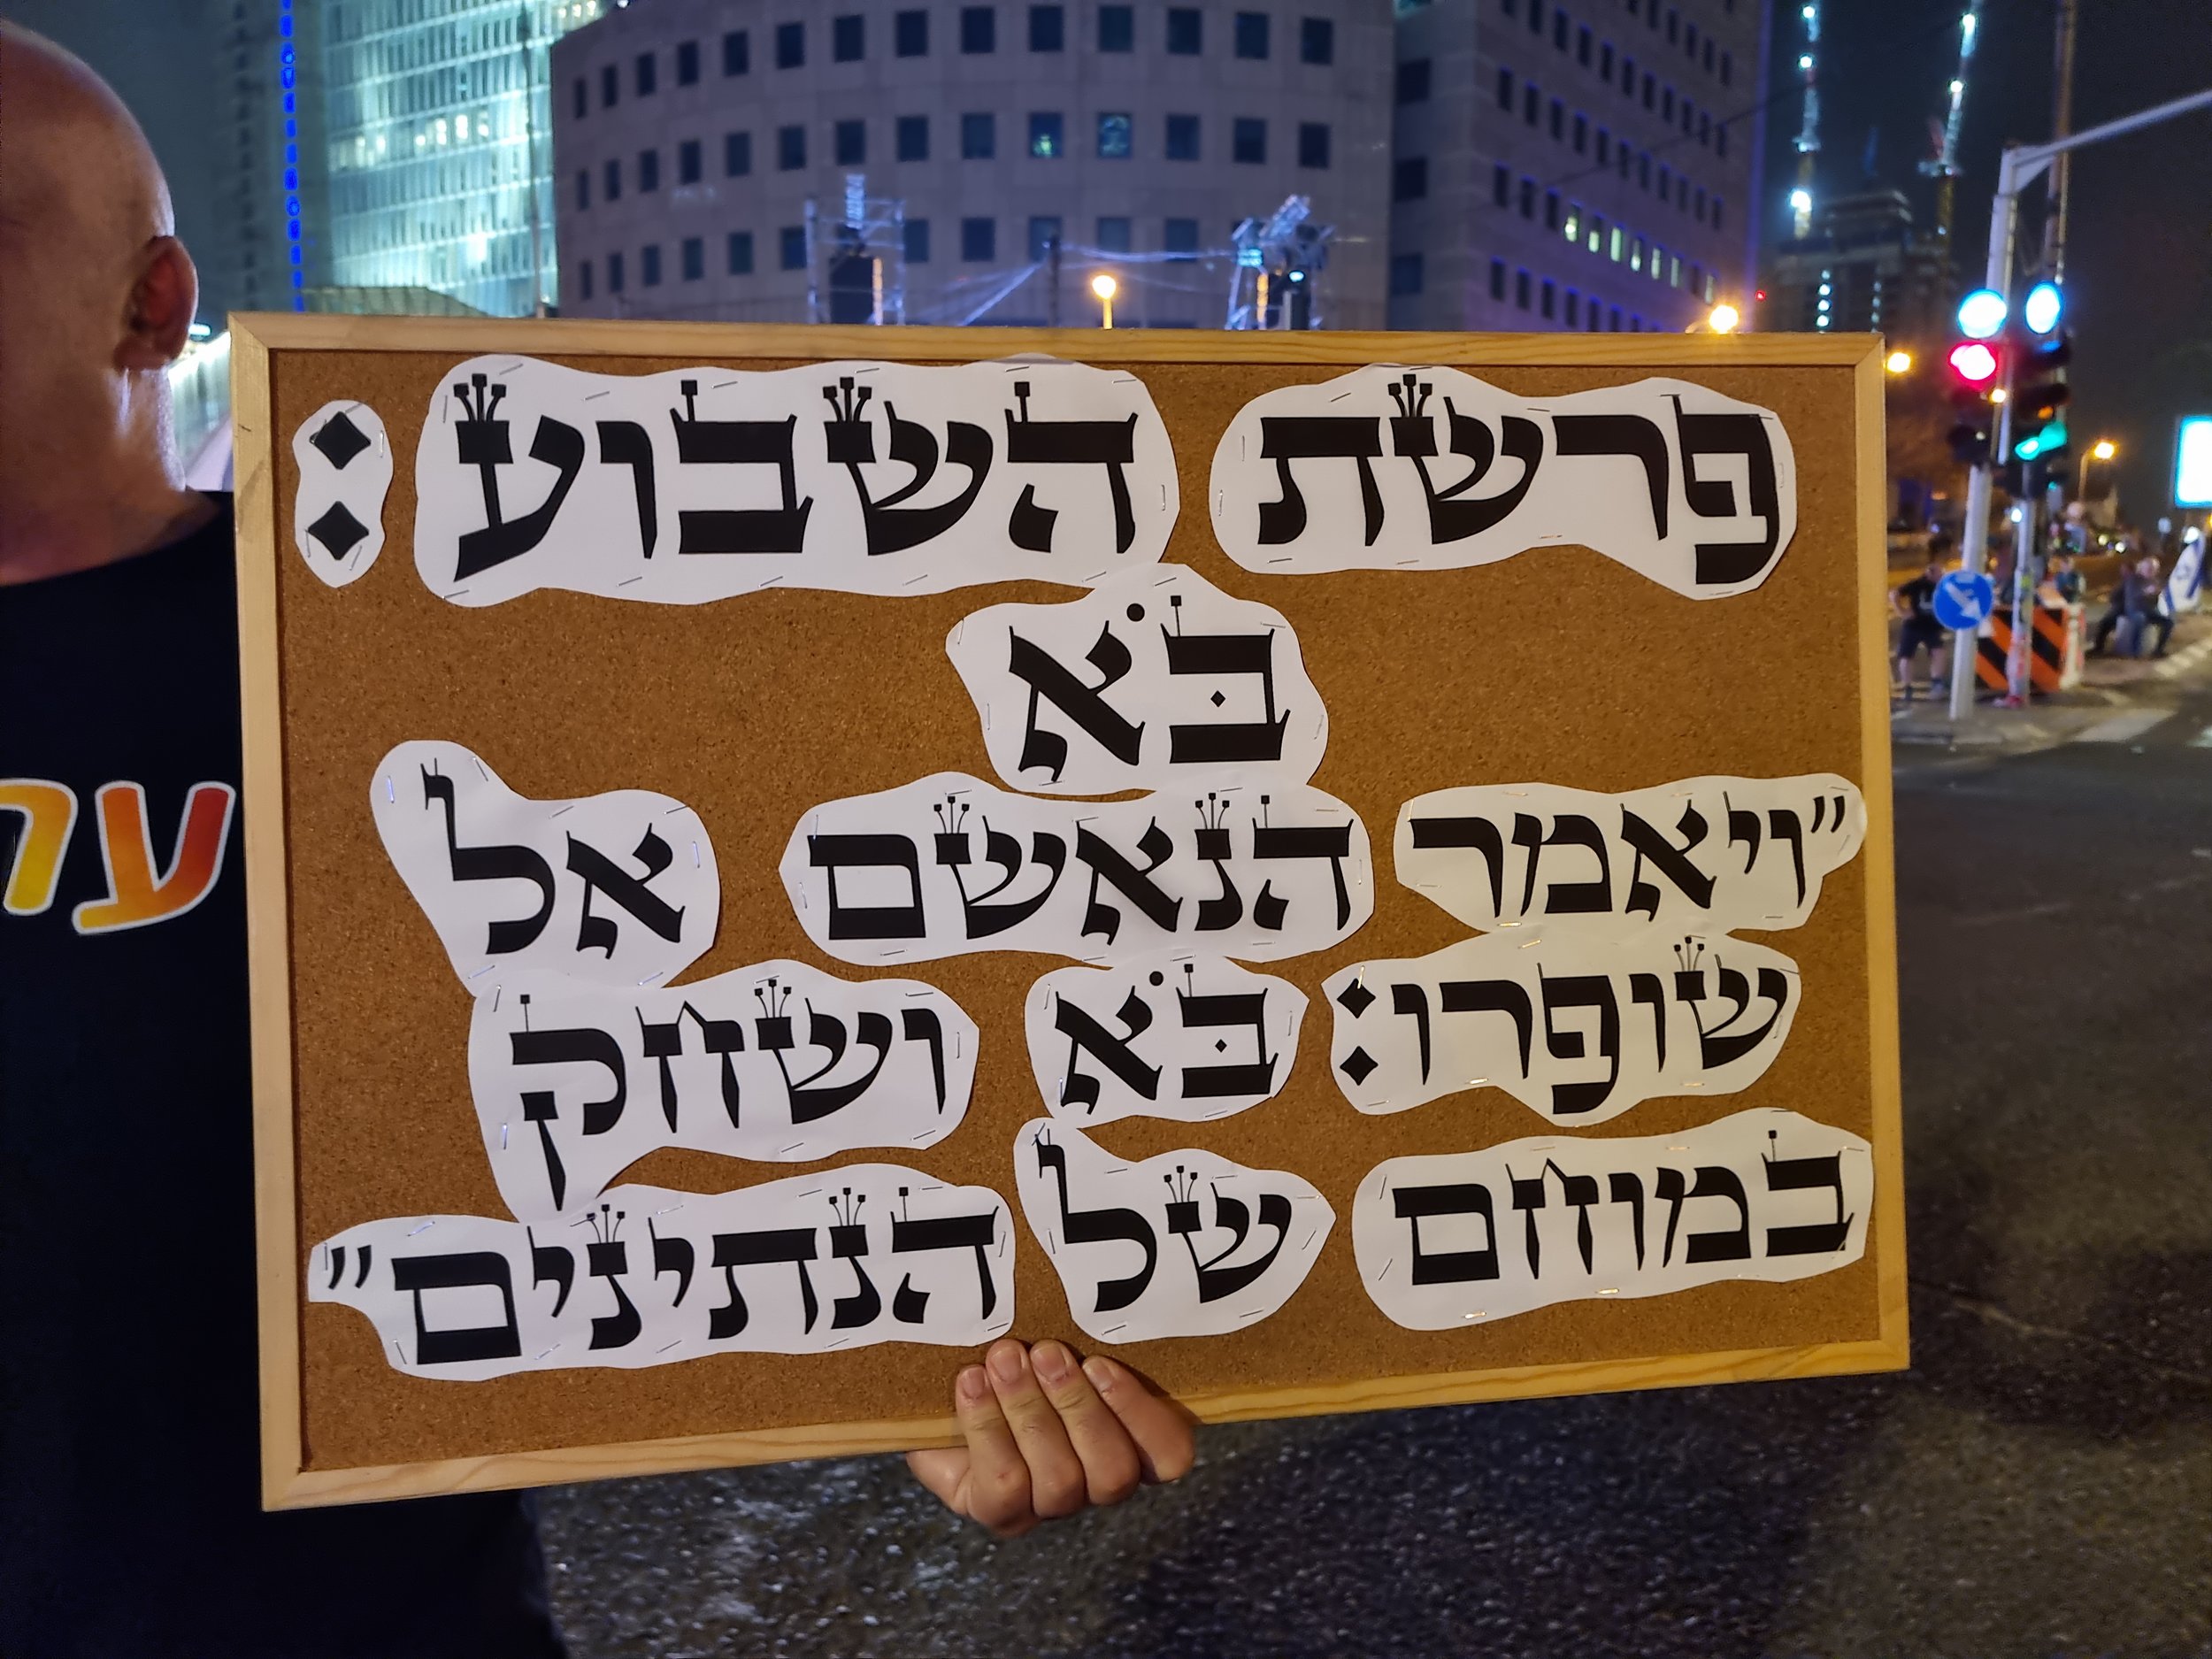 פרשת השבוע:
בֹּא
"ויאמר הנאשם אל
שופרו: בֹּא ושחק
במוחם של הנתינים"
ער